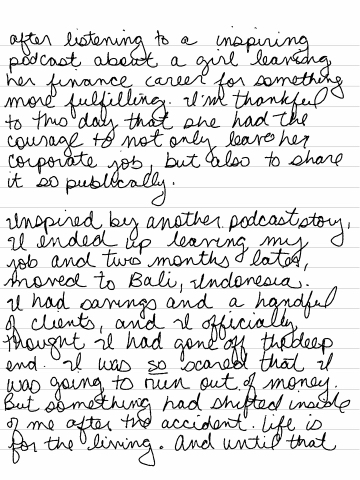 after listening to a inspiring
podcast about a girl leaving
her finance career for something
more fulfilling. I'm thankful
to this day that she had the
courage to not only leave her
corporate job, but also to share
it so publically.
Inspired by another podcast story,
I ended up leaving my
job and two months later,
moved to Bali, Indonesia.
I had savings and a handful
of clients, and I officially
thought I had gone off the deep
end. I was so scared that I
was going to run out of money.
But something had shifted inside
of me after the accident. Life is
for the living. And until that